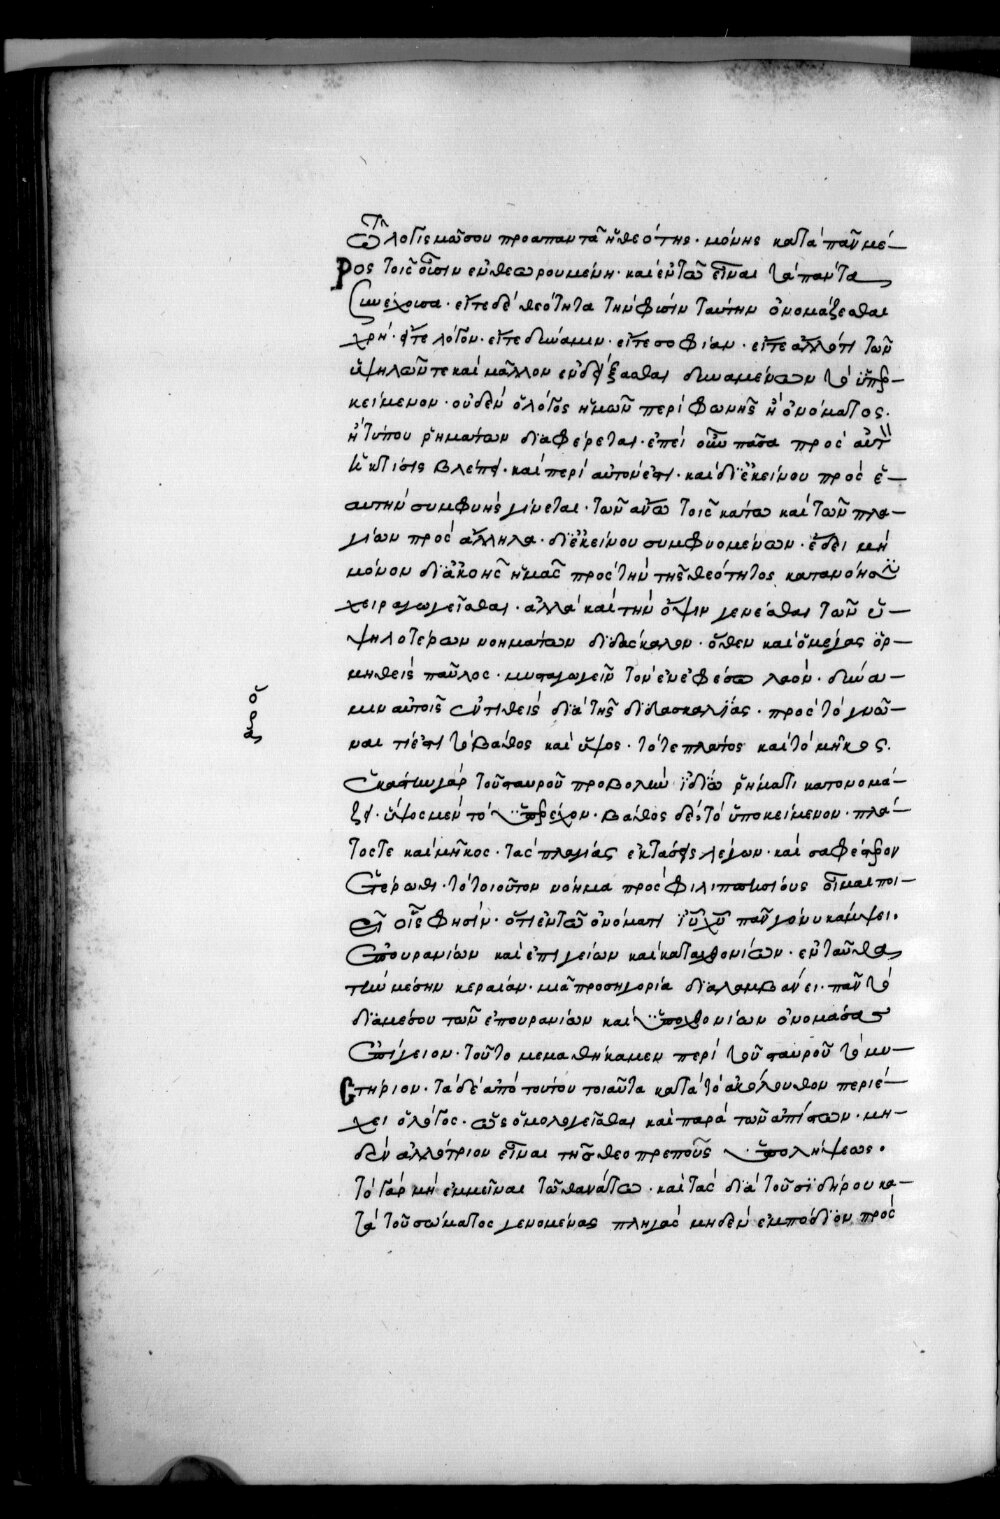 τῷ λογισμῶ σου προαπαντᾶ ἡ θεότης· μόνης κατὰ πᾶν μέ-
ρος τοῖς οὖσιν ἐνθεωρουμένη· καὶ ἐν τῶ εἶναι τὰ πάντα
συνέχουσα· εἴτε δὲ θεότητα τὴν φύσιν ταύτην ὀνομάζεσθαι
χρή· εἴτε λόγον· εἴτε δύναμιν· εἴτε σοφίαν· εἴτε ἄλλό τι τῶν
ὑψηλῶν τε καὶ μᾶλλον ἐνδείξασθαι δυναμένων τὸ ὑπερ-
κείμενον· οὐδὲν ὁ λόγος ἡμῶν περὶ φωνῆς ἢ ὀνόματος.
ἢ τύπου ῥημάτων διαφέρεται· ἐπεὶ οὖν πᾶσα πρὸς αὐτ
ἡ κτίσις βλέπει· καὶ περὶ αὐτόν ἐστι· καὶ δι' ἐκείνου πρὸς ἑ-
αυτὴν συμφυὴς γίνεται· τῶν ἄνω τοῖς κάτω καὶ τῶν πλα-
γίων πρὸς ἄλληλα· δι' ἐκείνου συμφυομένων· ἔδει μὴ
μόνον δι' ἀκοῆς ἡμᾶς πρὸς τὴν τῆς θεότητος κατανόησιν
χειραγωγεῖσθαι· ἀλλὰ καὶ τὴν ὄψιν γενέσθαι τῶν ὑ-
ψηλοτέρων νοημάτων διδάσκαλον· ὅθεν καὶ ὁ μέγας ὁρ-
μηθεὶς παῦλος· μυσταγωγεῖν τὸν ἐν ἐφέσω λαόν· δύνα-
μιν αὐτοῖς ἐντιθεὶς διὰ τῆς διδασκαλίας· πρὸς τὸ γνῶ-
ναι τί ἐστι τὸ βάθος καὶ ὕψος· τό τε πλάτος καὶ τὸ μῆκος.
ἑκάστην γὰρ τοῦ σταυροῦ προβολὴν ἰδίω ῥήματι κατονομά-
ζει· ὕψος μὲν τὸ ὑπερέχον· βάθος δὲ τὸ ὑποκείμενον· πλά-
τος τε καὶ μῆκος· τὰς πλαγίας ἐκτάσεις λέγων· καὶ σαφέστερον
ἑτέρωθι· τὸ τοιοῦτον νόημα πρὸς φιλιππησίους οἶμαι ποι-
εῖ οἷς φησίν· ὅτι ἐν τῶ ὀνόματι ἰυ χυ πᾶν γόνυ κάμψει.
ἐπουρανίων καὶ ἐπιγείων καὶ καταχθονίων· ἐνταῦθα
τὴν μέσην κεραίαν· μιᾶ προσηγορία διαλαμβάνει· πᾶν τὸ
διὰ μέσου τῶν ἐπουρανίων καὶ ὑποχθονίων ὀνομάσας
ἐπίγειον· τοῦτο μεμαθήκαμεν περὶ τοῦ σταυροῦ τὸ μυ-
στήριον· τὰ δὲ ἀπὸ τούτου τοιαῦτα κατὰ τὸ ἀκόλουθον περιέ-
χει ὁ λόγος· ὡς ὁμολογεῖσθαι καὶ παρὰ τῶν ἀπίστων· μη-
δὲν ἀλλότριον εἶναι τῆς θεοπρεποῦς ὑπολήψεως.
τὸ γὰρ μὴ ἐμμεῖναι τῶ θανάτω· καὶ τὰς διὰ τοῦ σιδήρου κα-
τὰ τοῦ σώματος γενομένας πληγὰς μηδὲν ἐμπόδιον πρὸς